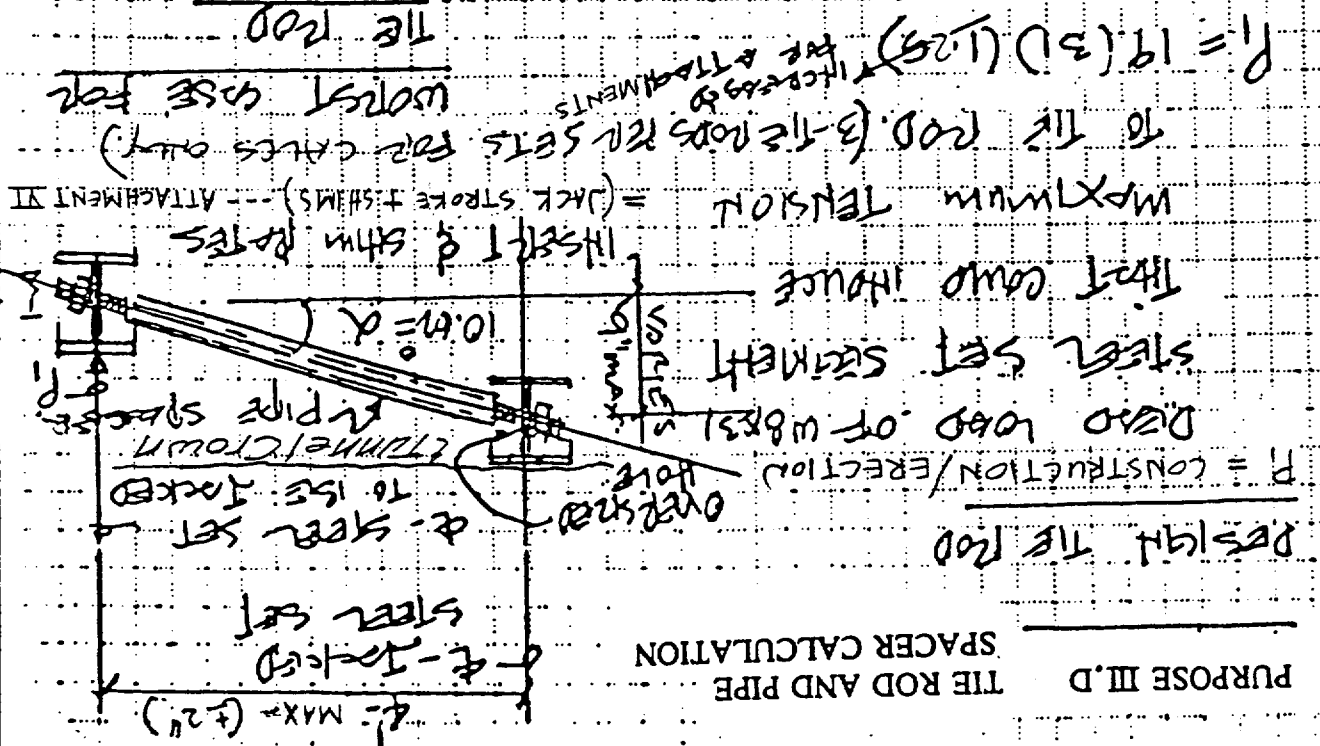 PURPOSE III.D TIE ROD AND PIPE
SPACER CALCULATION
DESIGN TIE ROD
P₁ = CONSTRUCTION/ERECTION
DEAD LOAD OF W8X31
STEEL SET SEGMENT
THAT COULD INDUCE
MAXIMUM TENSION
TO TIE ROD. (3-TIE RODS PER SETS FOR CALCS ONLY.)
P₁ = 19'(31)(1.25)
INCREASED
FOR ATTACHMENTS
WORST CASE FOR
TIE ROD
4'- MAX= (±2")
℄- JACKED
STEEL SET
℄- STEEL SET
TO BE JACKED
OVERSIZED
HOLE
℄ Tunnel Crown
PIPE SPACER
P₁
VARIES
9" max.
α
INSERT & SHIM PLATES
=(JACK STROKE + SHIMS) --- ATTACHMENT VI
T